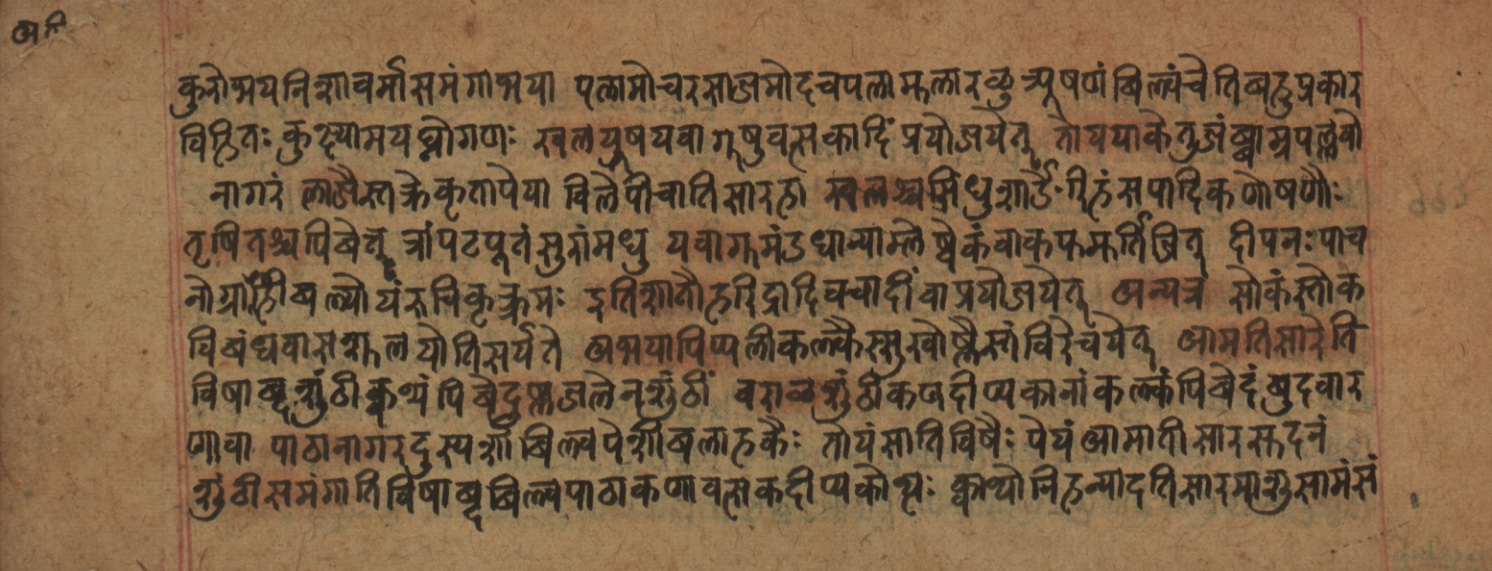 अति
कुनोभयनिशावर्मासमंगाभया पलामोचरसाजमोदचपलाम्रलारळुत्र्यूषणं बिल्वंचेतिबहुप्रकार
विहितः कुक्ष्यामयघ्नोगणः खलयुषयवागूषुवत्सकादिं प्रयोजयेत् तोययाकेतुजंब्वाम्रपल्लवो
नागरं लाजैस्तक्रेकृतापेया विलेपीचातिसारहा खलश्च सिंधु हंसपादिकणोषणैः
तृषितश्चपिबेत् पटपूतंसुरांमधु यवागूमंड धान्याम्ले दीपनःपाच
नोग्राही बल्योयंरुचिकृत्क्रमः इतिशातौहरिद्रादिवचादींवाप्रयोजयेत् अन्यत्र सोकंस्तोक
विबंधवासशूलयोतिसर्यते अभयापिप्पलीकल्कैस्सुखोष्णैस्तंविरेचयेत् आमतिसारेति
विषाब्दशुंठीक्वथं पिबेदुष्णजलेनशुंठीं वराळशुंठीकणदीप्यकानांकल्कंपिबेदंबुदवार
णावा पाठानागरदुस्पर्शाबिल्वपेशीबलाहकैः तोयंसातिविषैः पेयंआमातीसारसूदनं
शुंठीसमंगातिविषाब्दबिल्वपाठाकणावत्सकदीप्यकोथः क्वाथोनिहन्यादतिसारमाशुसामंसं